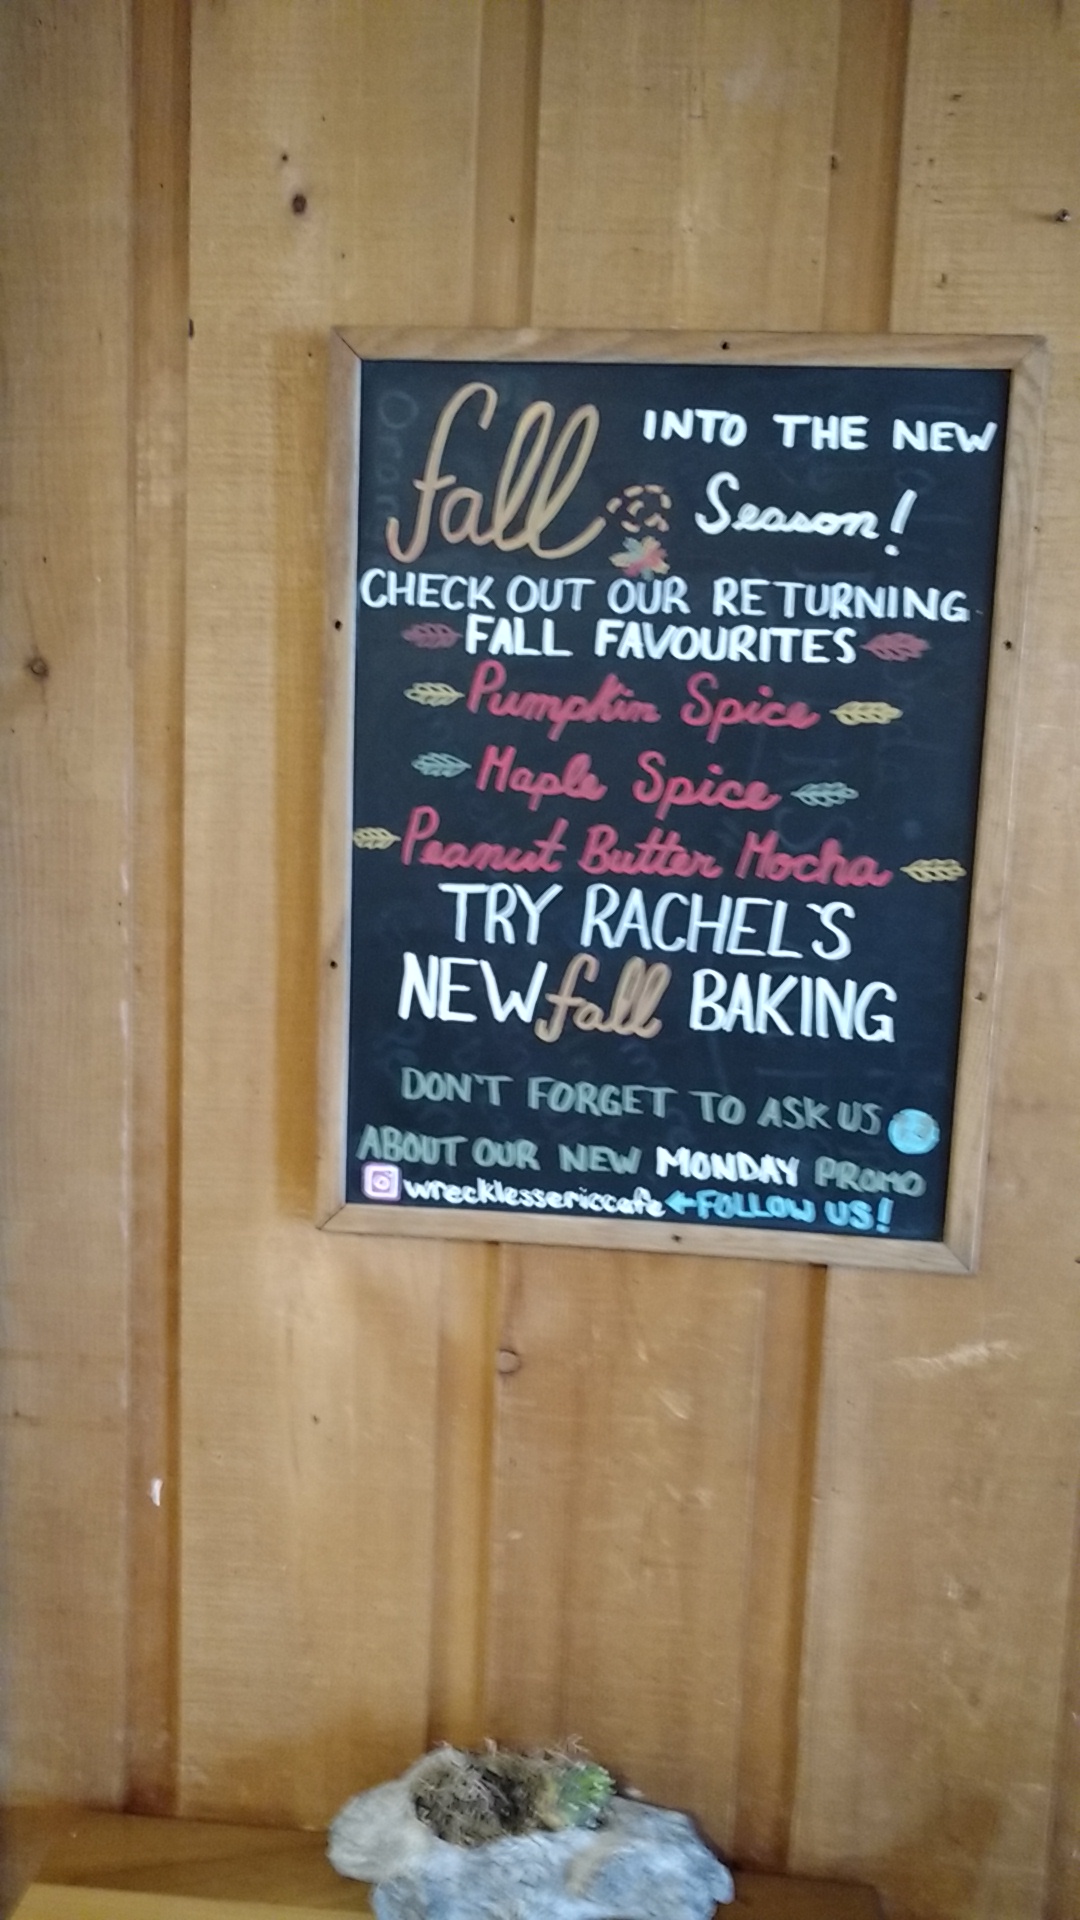 fall INTO THE NEW
Season!
CHECK OUT OUR RETURNING
FALL FAVOURITES
Pumpkin Spice
Maple Spice
Peanut Butter Mocha
TRY RACHEL'S
NEW fall BAKING
DON'T FORGET TO ASK US
ABOUT OUR NEW MONDAY PROMO
wrecklessericcafe ← FOLLOW US!